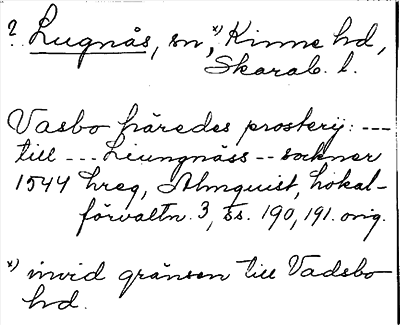 ? Lugnås, sn,*) Kinne hd,
Skarab. l.
Vasbo häredes prosterij: ---
till --- Liungnäss -- sockner
1544 hreg, Almquist, Lokal-
förvaltn. 3, ss. 190, 191. orig.
*) invid gränsen till Vadsbo
hd.